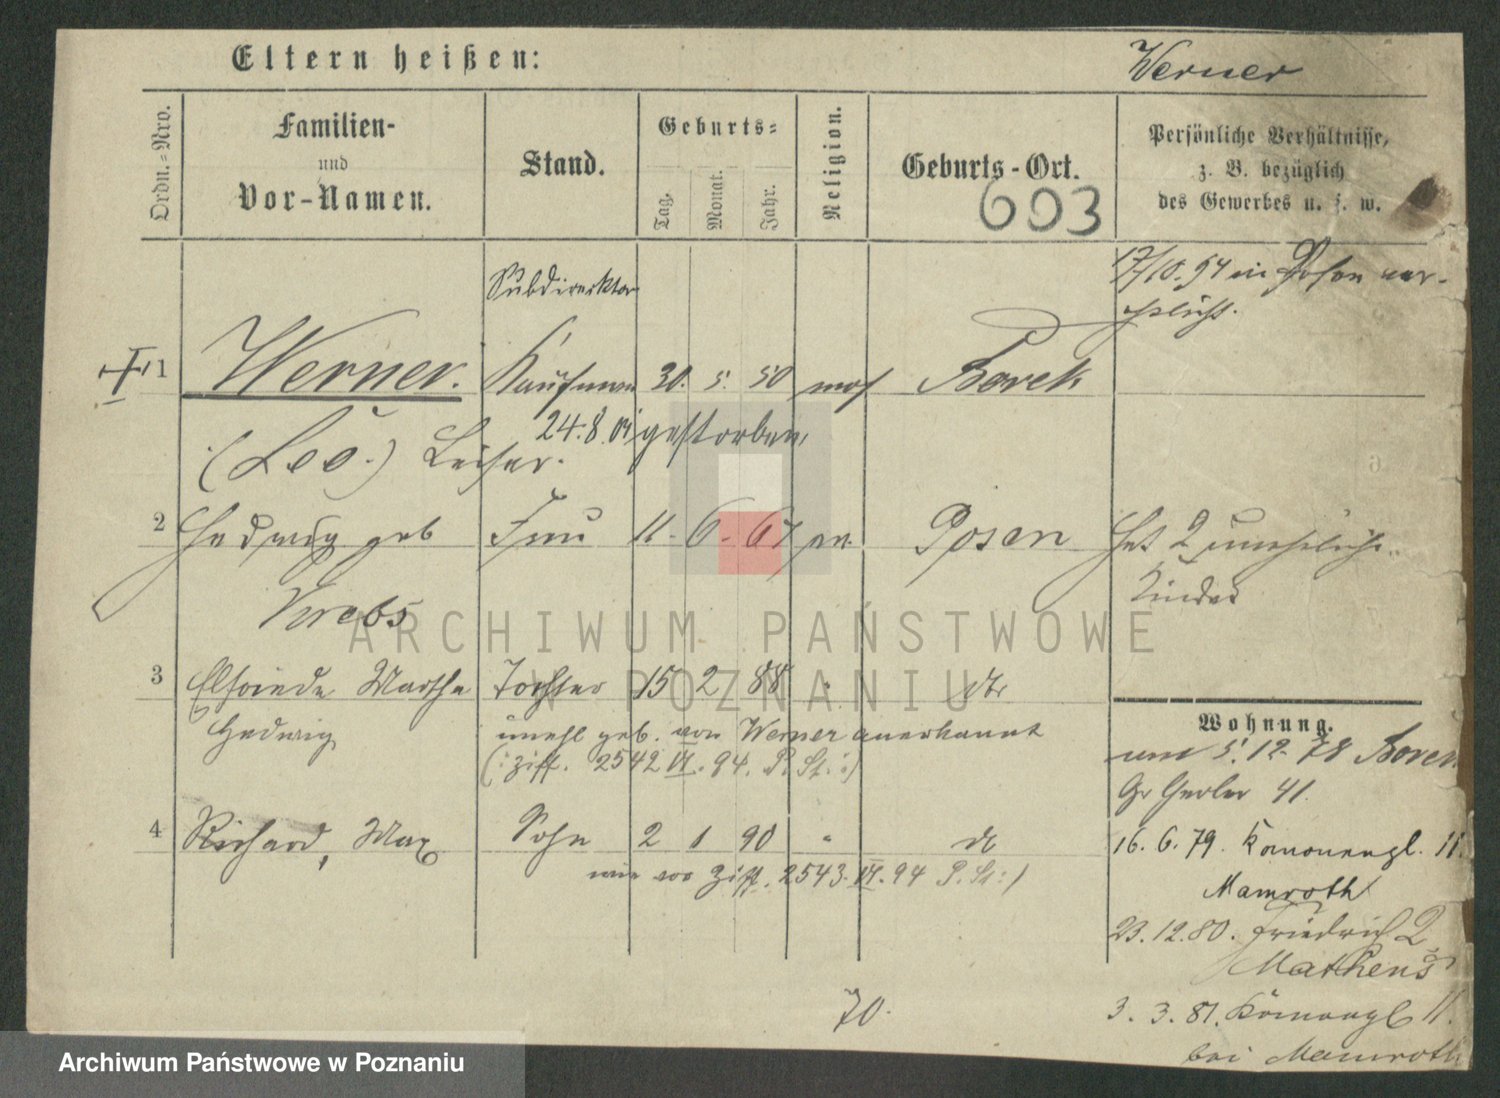 Eltern heißen:
Werner
Ordn.-Nro.
Familien-
und
Vor-Namen.
Stand.
Geburts-
Tag.
Monat.
Jahr.
Religion.
Geburts-Ort.
603
Persönliche Verhältnisse,
z. B. bezüglich
des Gewerbes u. s. w.
Subdirektor
17/10.94 in Posen ver-
ehelicht.
1 Werner. Kaufmann 30. 5. 50 mos Borek
24.8. gestorben
(Leo.) Leiser.
2 Hedwig geb Frau 11. 6. 67 Posen Hat 2 uneheliche
Kinder
Krebs
3 Elfriede Martha Tochter 15 2 88 " dto
Hedwig unehl geb. von Werner anerkannt
(: Ziff. 2542 VI. 94. P. St. :)
Wohnung.
5. 12. 78 Borek
Gr Gerber 41.
4 Richard, Max Sohn 2 1 90 " do
wie vor Ziff. 2543. VI. 94 P. St :)
16. 6. 79. 11.
Mamroth
23. 12. 80. Friedrich 2
Matheus
3. 3. 81. 11.
bei Mamroth
70.
ARCHIWUM PAŃSTWOWE
W POZNANIU
Archiwum Państwowe w Poznaniu